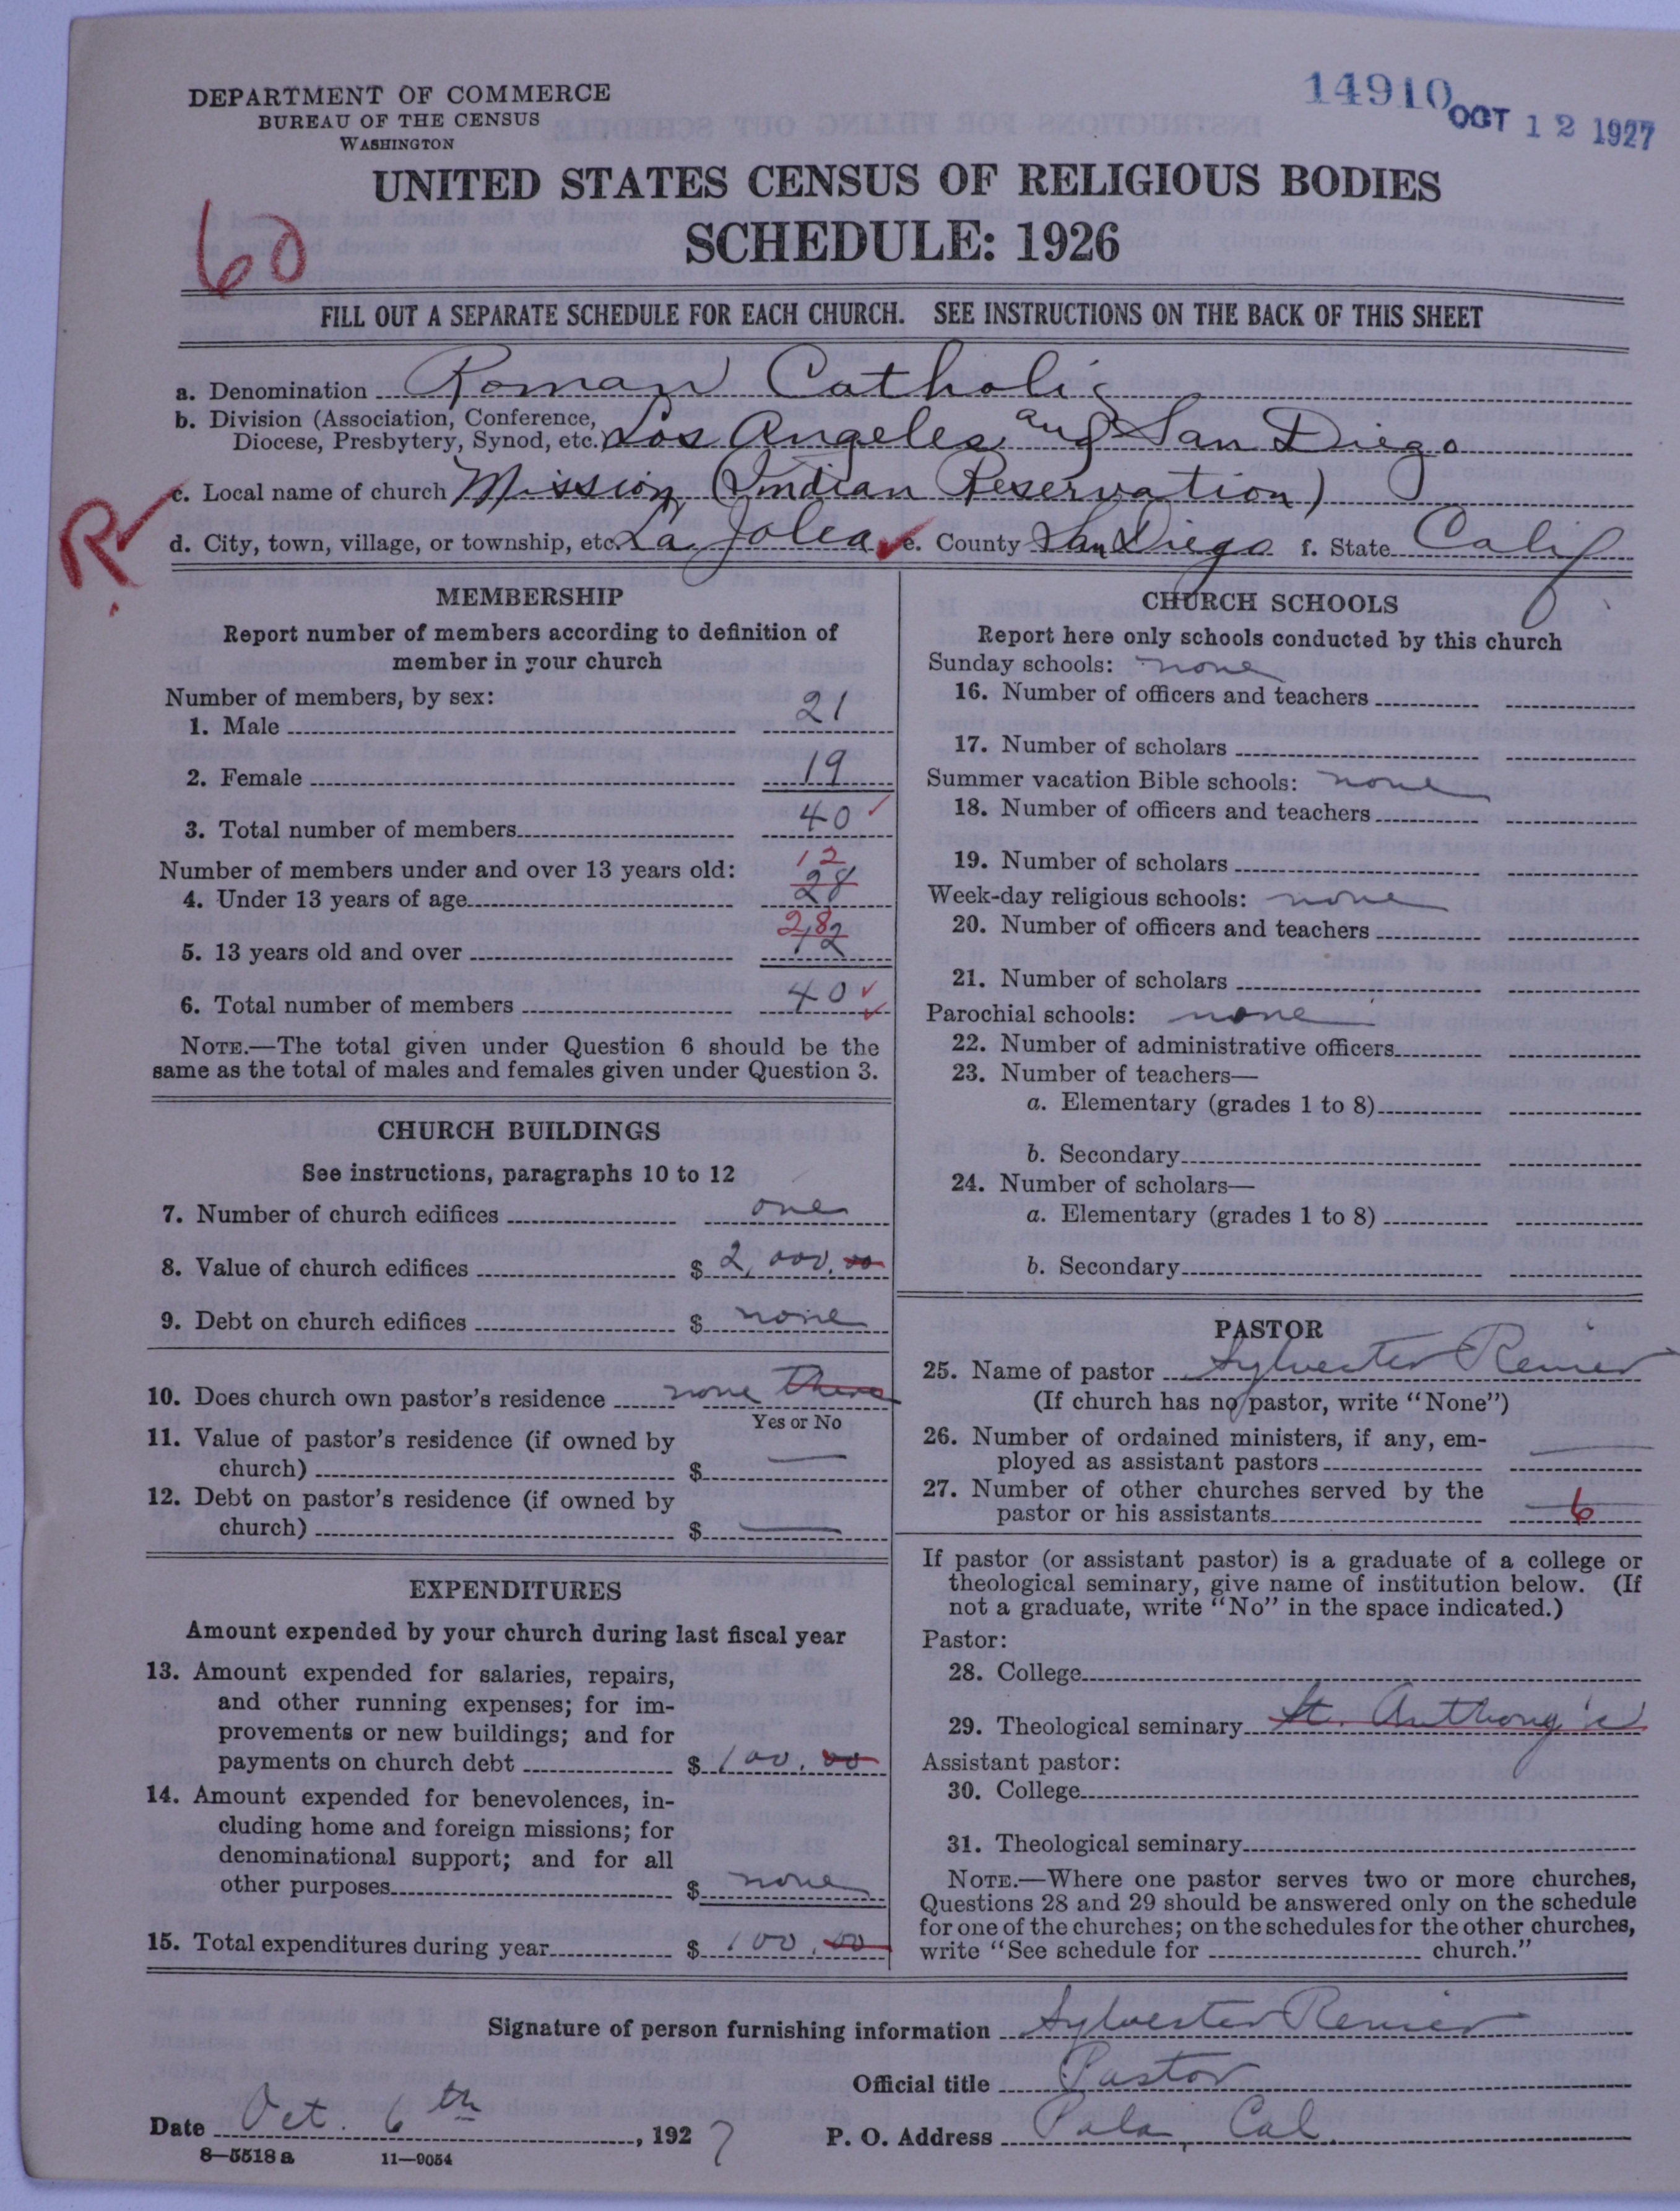 DEPARTMENT OF COMMERCE
BUREAU OF THE CENSUS
WASHINGTON
14910
OCT 12 1927
UNITED STATES CENSUS OF RELIGIOUS BODIES
SCHEDULE: 1926
60
FILL OUT A SEPARATE SCHEDULE FOR EACH CHURCH. SEE INSTRUCTIONS ON THE BACK OF THIS SHEET
a. Denomination Roman Catholic
b. Division (Association, Conference,
Diocese, Presbytery, Synod, etc.) Los Angeles and San Diego
c. Local name of church Mission (Indian Reservation)
R
d. City, town, village, or township, etc. La Jolea e. County San Diego f. State Calif
MEMBERSHIP
Report number of members according to definition of
member in your church
Number of members, by sex:
1. Male 21
2. Female 19
3. Total number of members 40
Number of members under and over 13 years old: 12
4. Under 13 years of age 28
28
5. 13 years old and over 12
6. Total number of members 40
NOTE.—The total given under Question 6 should be the
same as the total of males and females given under Question 3.
CHURCH BUILDINGS
See instructions, paragraphs 10 to 12
7. Number of church edifices one
8. Value of church edifices $ 2,000.00
9. Debt on church edifices $ none
10. Does church own pastor's residence none there
Yes or No
11. Value of pastor's residence (if owned by
church) $ —
12. Debt on pastor's residence (if owned by
church) $ —
EXPENDITURES
Amount expended by your church during last fiscal year
13. Amount expended for salaries, repairs,
and other running expenses; for im-
provements or new buildings; and for
payments on church debt $ 100.00
14. Amount expended for benevolences, in-
cluding home and foreign missions; for
denominational support; and for all
other purposes $ none
15. Total expenditures during year $ 100.00
CHURCH SCHOOLS
Report here only schools conducted by this church
Sunday schools: none
16. Number of officers and teachers
17. Number of scholars
Summer vacation Bible schools: none
18. Number of officers and teachers
19. Number of scholars
Week-day religious schools: none
20. Number of officers and teachers
21. Number of scholars
Parochial schools: none
22. Number of administrative officers
23. Number of teachers—
a. Elementary (grades 1 to 8)
b. Secondary
24. Number of scholars—
a. Elementary (grades 1 to 8)
b. Secondary
PASTOR
25. Name of pastor Sylvester Renier
(If church has no pastor, write "None")
26. Number of ordained ministers, if any, em-
ployed as assistant pastors —
27. Number of other churches served by the
pastor or his assistants 6
If pastor (or assistant pastor) is a graduate of a college or
theological seminary, give name of institution below. (If
not a graduate, write "No" in the space indicated.)
Pastor:
28. College
29. Theological seminary St. Anthony's
Assistant pastor:
30. College
31. Theological seminary
NOTE.—Where one pastor serves two or more churches,
Questions 28 and 29 should be answered only on the schedule
for one of the churches; on the schedules for the other churches,
write "See schedule for church."
Signature of person furnishing information Sylvester Renier
Official title Pastor
Date Oct. 6th, 1927 P. O. Address Pala, Cal.
8—5518 a 11—9054